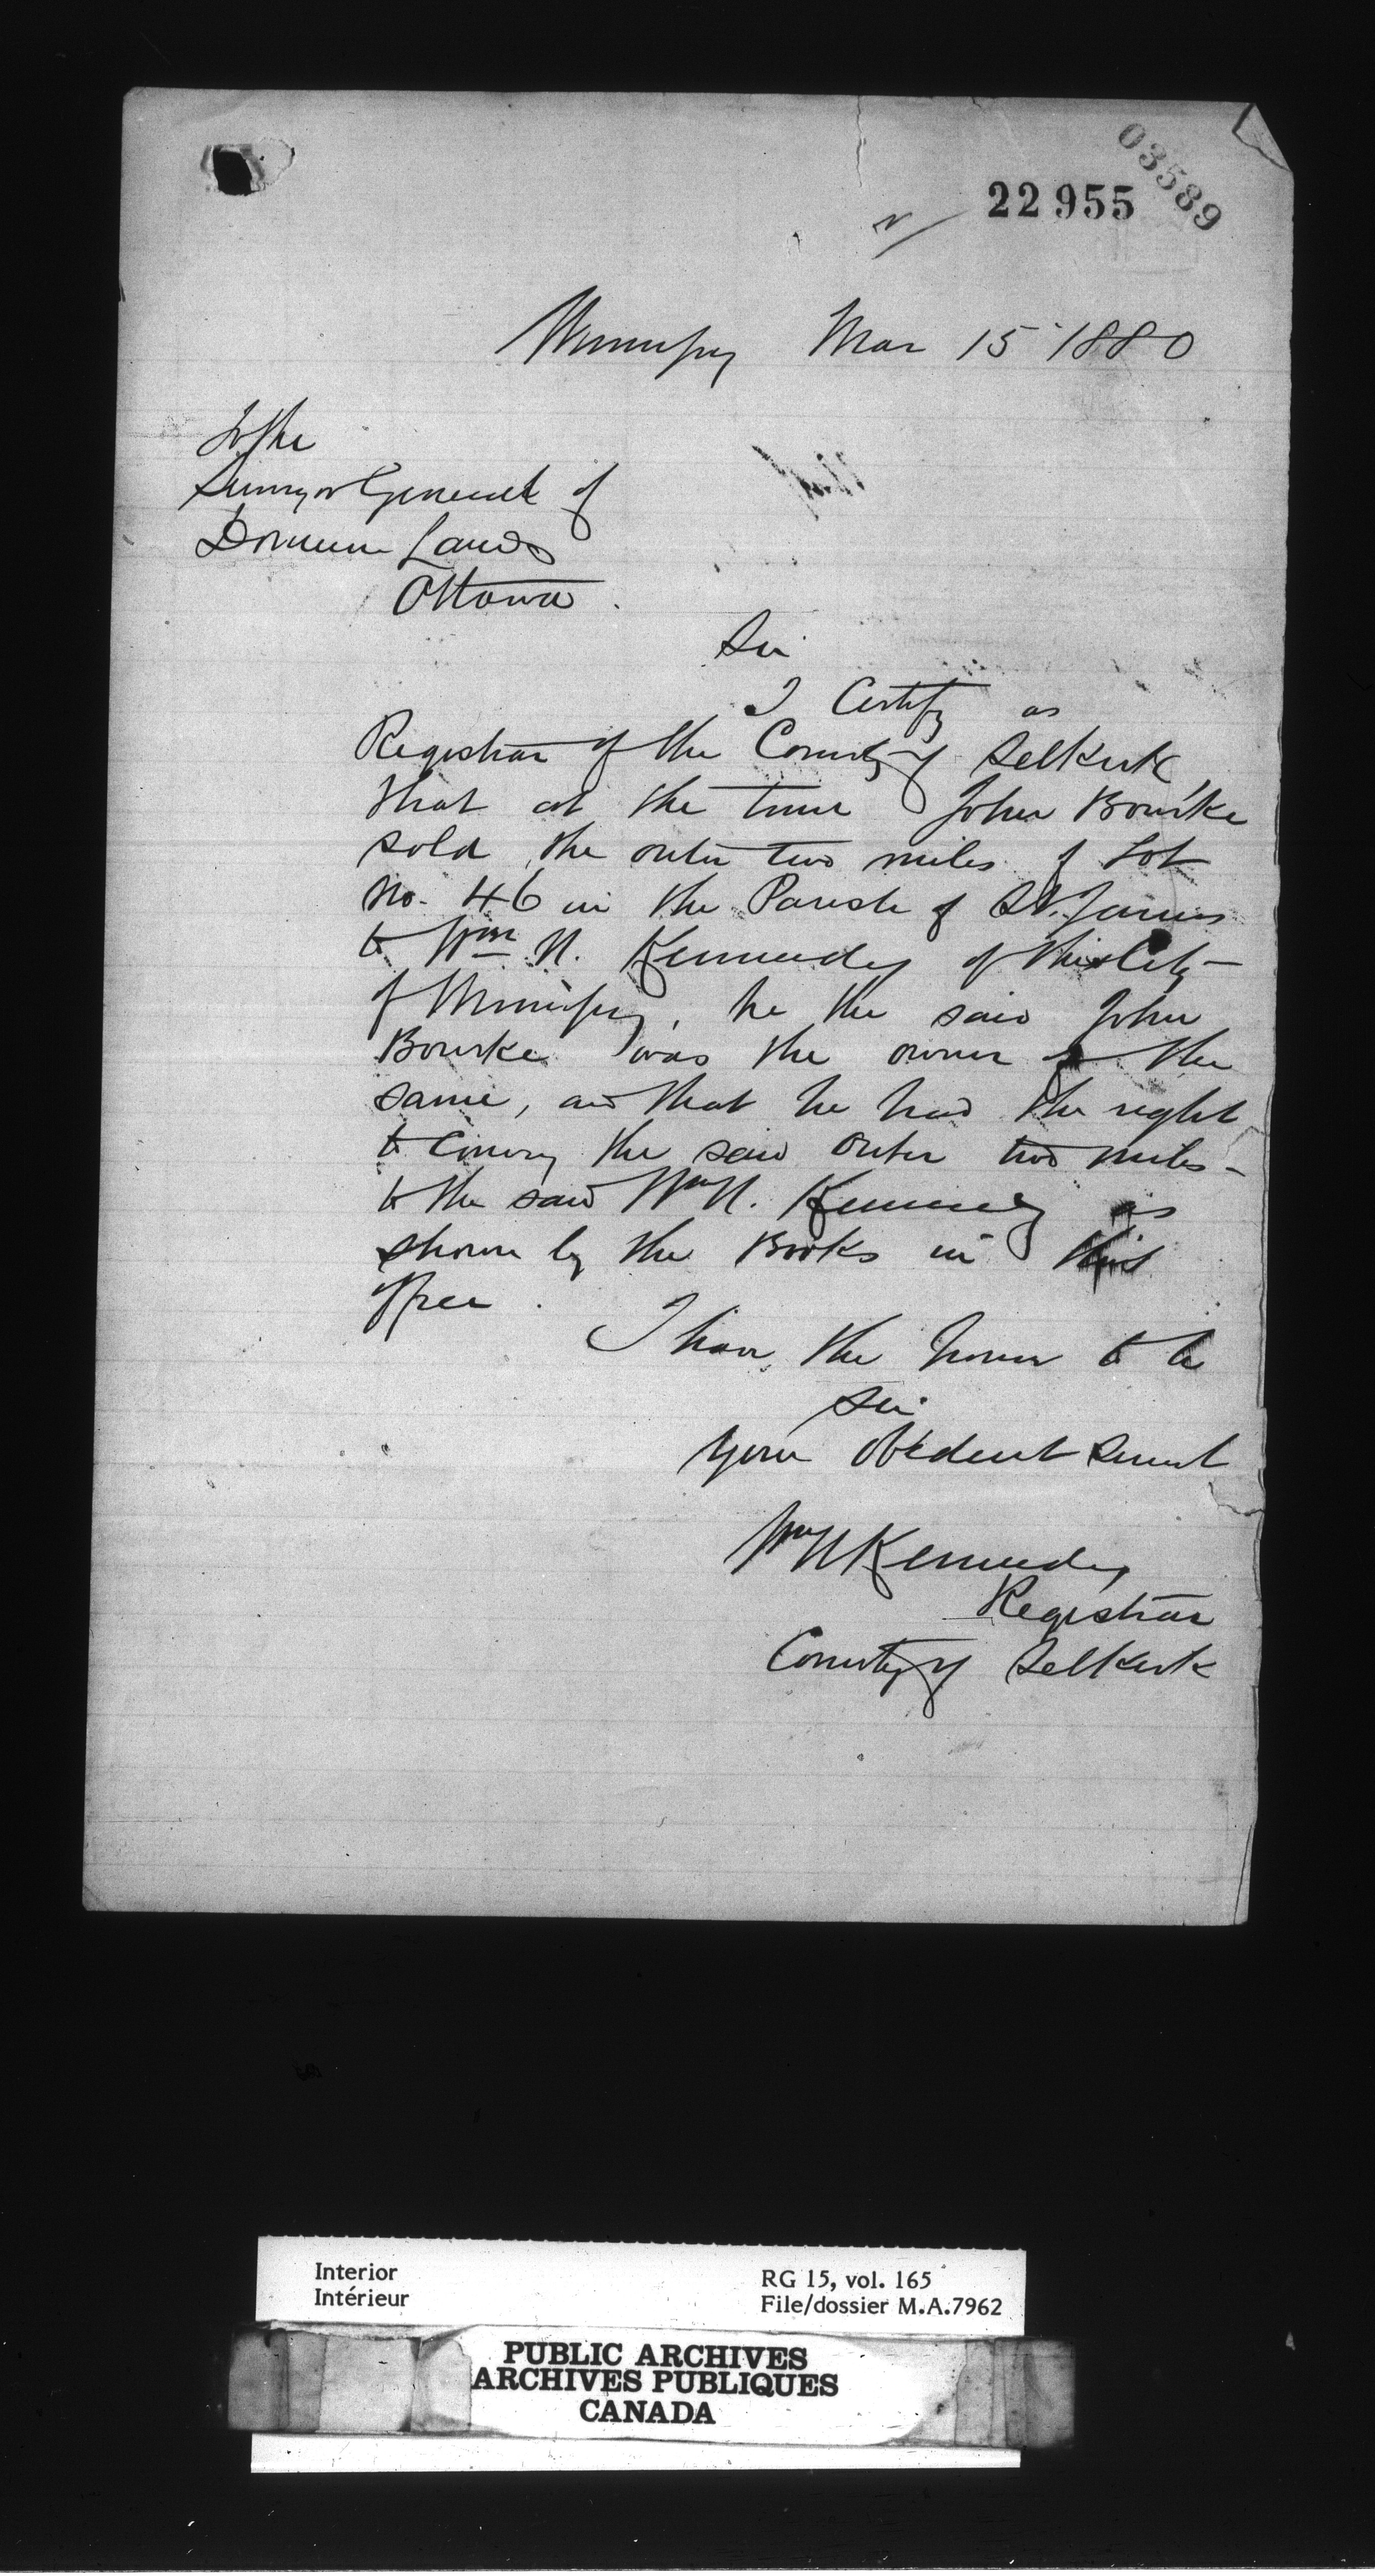 03589
22955
Winnipeg Mar 15 1880
To the
Surveyor General of
Dominion Lands
Ottawa.
Sir
I Certify as
Registrar of the County of Selkirk
that at the time John Bourke
sold the outer two miles of Lot
No. 46 in the Parish of St. James
to Wm N. Kennedy of this City
of Winnipeg, he the said John
Bourke was the owner of the
same, and that he had the right
to convey the said outer two miles
to the said Wm N. Kennedy as
shown by the Books in this
office.
I have the honor to be
Sir
Your obedient servant
Wm N Kennedy
Registrar
County of Selkirk
Interior
Intérieur
RG 15, vol. 165
File/dossier M.A.7962
PUBLIC ARCHIVES
ARCHIVES PUBLIQUES
CANADA